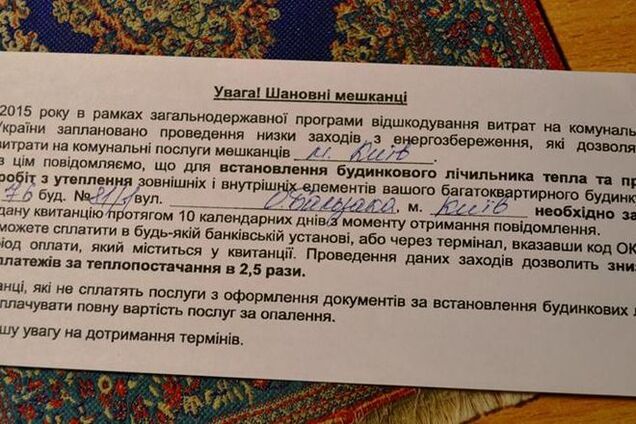 Увага! Шановні мешканці
2015 року в рамках загальнодержавної програми відшкодування витрат на комунал
України заплановано проведення низки заходів з енергозбереження, які дозволя
витрати на комунальні послуги мешканців м. Київ.
з цім повідомляємо, що для встановлення будинкового лічильника тепла та пр
робіт з утеплення зовнішніх і внутрішніх елементів вашого багатоквартирного будинк
7б буд. № вул. , м. Київ необхідно за
дану квитанцію протягом 10 календарних днів з моменту отримання повідомлення.
можете сплатити в будь-якій банківській установі, або через термінал, вказавши код ОК
ріод оплати, який міститься у квитанції. Проведення даних заходів дозволить зни
платежів за теплопостачання в 2,5 рази.
анці, які не сплатять послуги з оформлення документів за встановлення будинкових л
плачувати повну вартість послуг за опалення.
шу увагу на дотримання термінів.